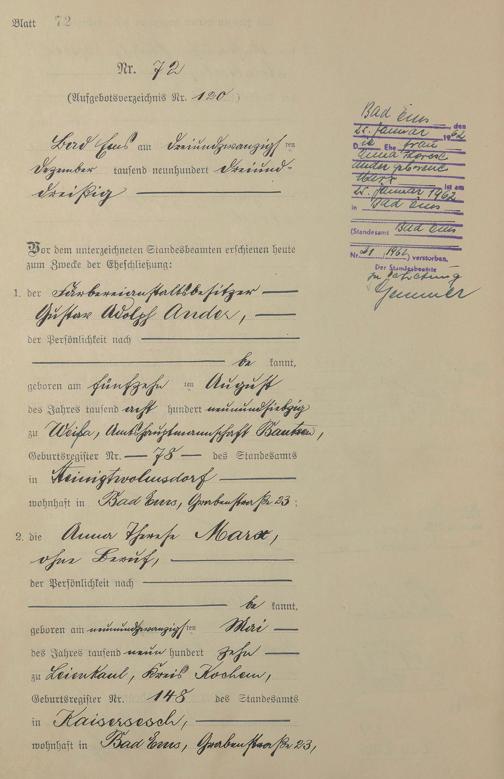 Blatt 72
Nr. 72
(Aufgebotsverzeichnis Nr. 120)
Bad Ems am dreiundzwanzigsten
Dezember tausend neunhundert dreiund-
dreißig
Vor dem unterzeichneten Standesbeamten erschienen heute
zum Zwecke der Eheschließung:
1. der Färbereianstaltsbesitzer
Gustav Adolph Ander,
der Persönlichkeit nach
be kannt,
geboren am fünfzehn ten August
des Jahres tausend acht hundert neunundsiebzig
zu Weifa, Amtshauptmannschaft Bautzen,
Geburtsregister Nr. 78 des Standesamts
in Steinigtwolmsdorf
wohnhaft in Bad Ems, Grabenstraße 23;
2. die Anna Therese Marx,
ohne Beruf,
der Persönlichkeit nach
be kannt,
geboren am neunundzwanzigsten Mai
des Jahres tausend neun hundert zehn
zu Leienkaul, Kreis Kochem,
Geburtsregister Nr. 148 des Standesamts
in Kaisersesch,
wohnhaft in Bad Ems, Grabenstraße 23,
Bad Ems, den
25. Januar 1962
Die Ehefrau
Anna Therese
Ander geborene
Marx ist am
25. Januar 1962
in Bad Ems
(Standesamt Bad Ems
Nr. 21 1962) verstorben.
Der Standesbeamte